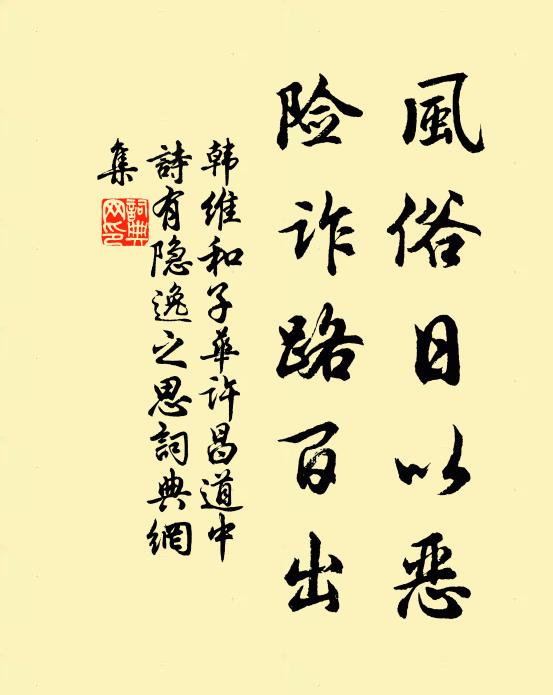 風俗日以恶
险诈路百出
韩维和子華许昌道中
詩有隐逸之思詞典網
集
詞典
网印